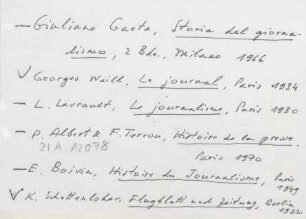 — Giuliano Gaeta, Storia del giorna-
lismo, 2 Bde., Milano 1966
√ Georges Weill, Le journal, Paris 1934
— L. Levrault, Le journalisme, Paris 1930
— P. Albert & F. Terrou, Histoire de la presse,
21A 12078
Paris 1970
— E. Boivin, Histoire du Journalisme, Paris
1949
√ K. Schottenloher, Flugblatt und Zeitung, Berlin
1922